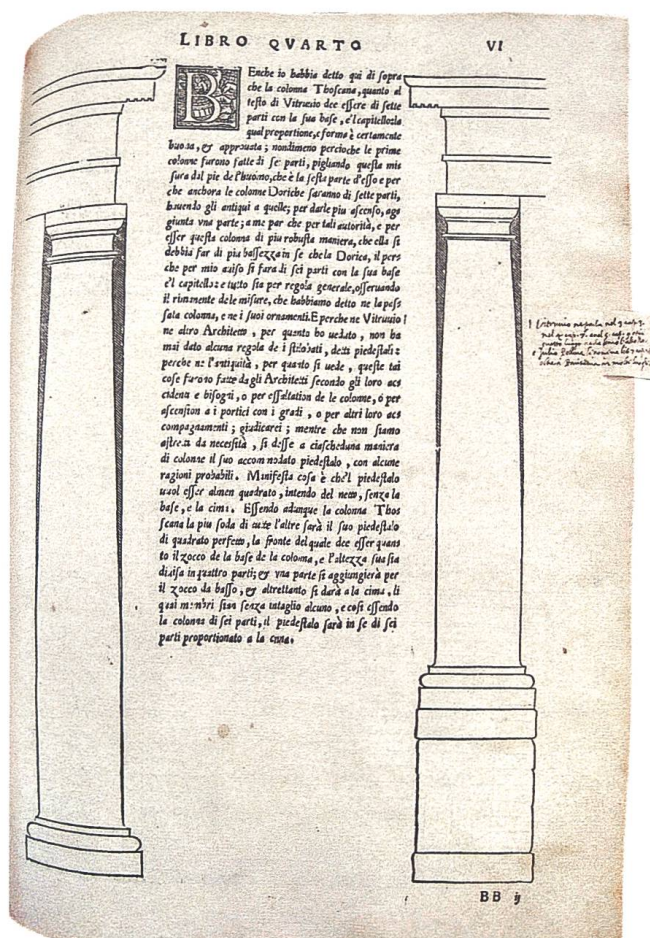 LIBRO QVARTO VI
BEnche io habbia detto qui di sopra
che la colonna Thoscana, quanto al
testo di Vitruuio dee essere di sette
parti con la sua base, e'l capitello: la
qual proportione, e forma è certamente
buona, & approuata; nondimeno percioche le prime
colonne furono fatte di sei parti, pigliando questa mis
sura dal pie de l'huomo, che è la sesta parte d'esso e per
che anchora le colonne Doriche saranno di sette parti,
hauendo gli antiqui a quelle; per darle piu ascenso, agg
giunta vna parte; a me par che per tali autorità, e per
esser questa colonna di piu robusta maniera, che ella si
debbia far di piu bassezza in se che la Dorica, il pers
che per mio auiso si fara di sei parti con la sua base
e'l capitello: e tutto sia per regola generale, osseruando
il rimanente dele misure, che habbiamo detto ne la pass
sata colonna, e ne i suoi ornamenti. E perche ne Vitruuio
ne altro Architetto, per quanto ho uedato, non ha
mai dato alcuna regola de i stilobati, detti piedestali:
perche ne l'antiquità, per quanto si uede, queste tai
cose furono fatte dagli Architetti secondo gli loro acs
cidenti e bisogni, o per essaltation de le colonne, o per
ascension a i portici con i gradi, o per altri loro acs
compagnamenti; giudicarei; mentre che non siamo
astretti da necessità, si desse a ciascheduna maniera
di colonne il suo accommodato piedestalo, con alcune
ragioni probabili. Manifesta cosa è che'l piedestalo
uuol esser almen quadrato, intendo del netto, senza la
base, e la cima. Essendo adunque la colonna Thos
scana la piu soda di tutte l'altre sarà il suo piedestalo
di quadrato perfetto, la fronte del quale dee esser quans
to il zocco de la base de la colonna, e l'altezza sua sia
diuisa in quattro parti; & vna parte si aggiungierà per
il zocco da basso, & altrettanto si darà a la cima, li
quai membri sian senza intaglio alcuno, e cosi essendo
la colonna di sei parti, il piedestalo sarà in se di sei
parti proportionato a la cima.
BB ij